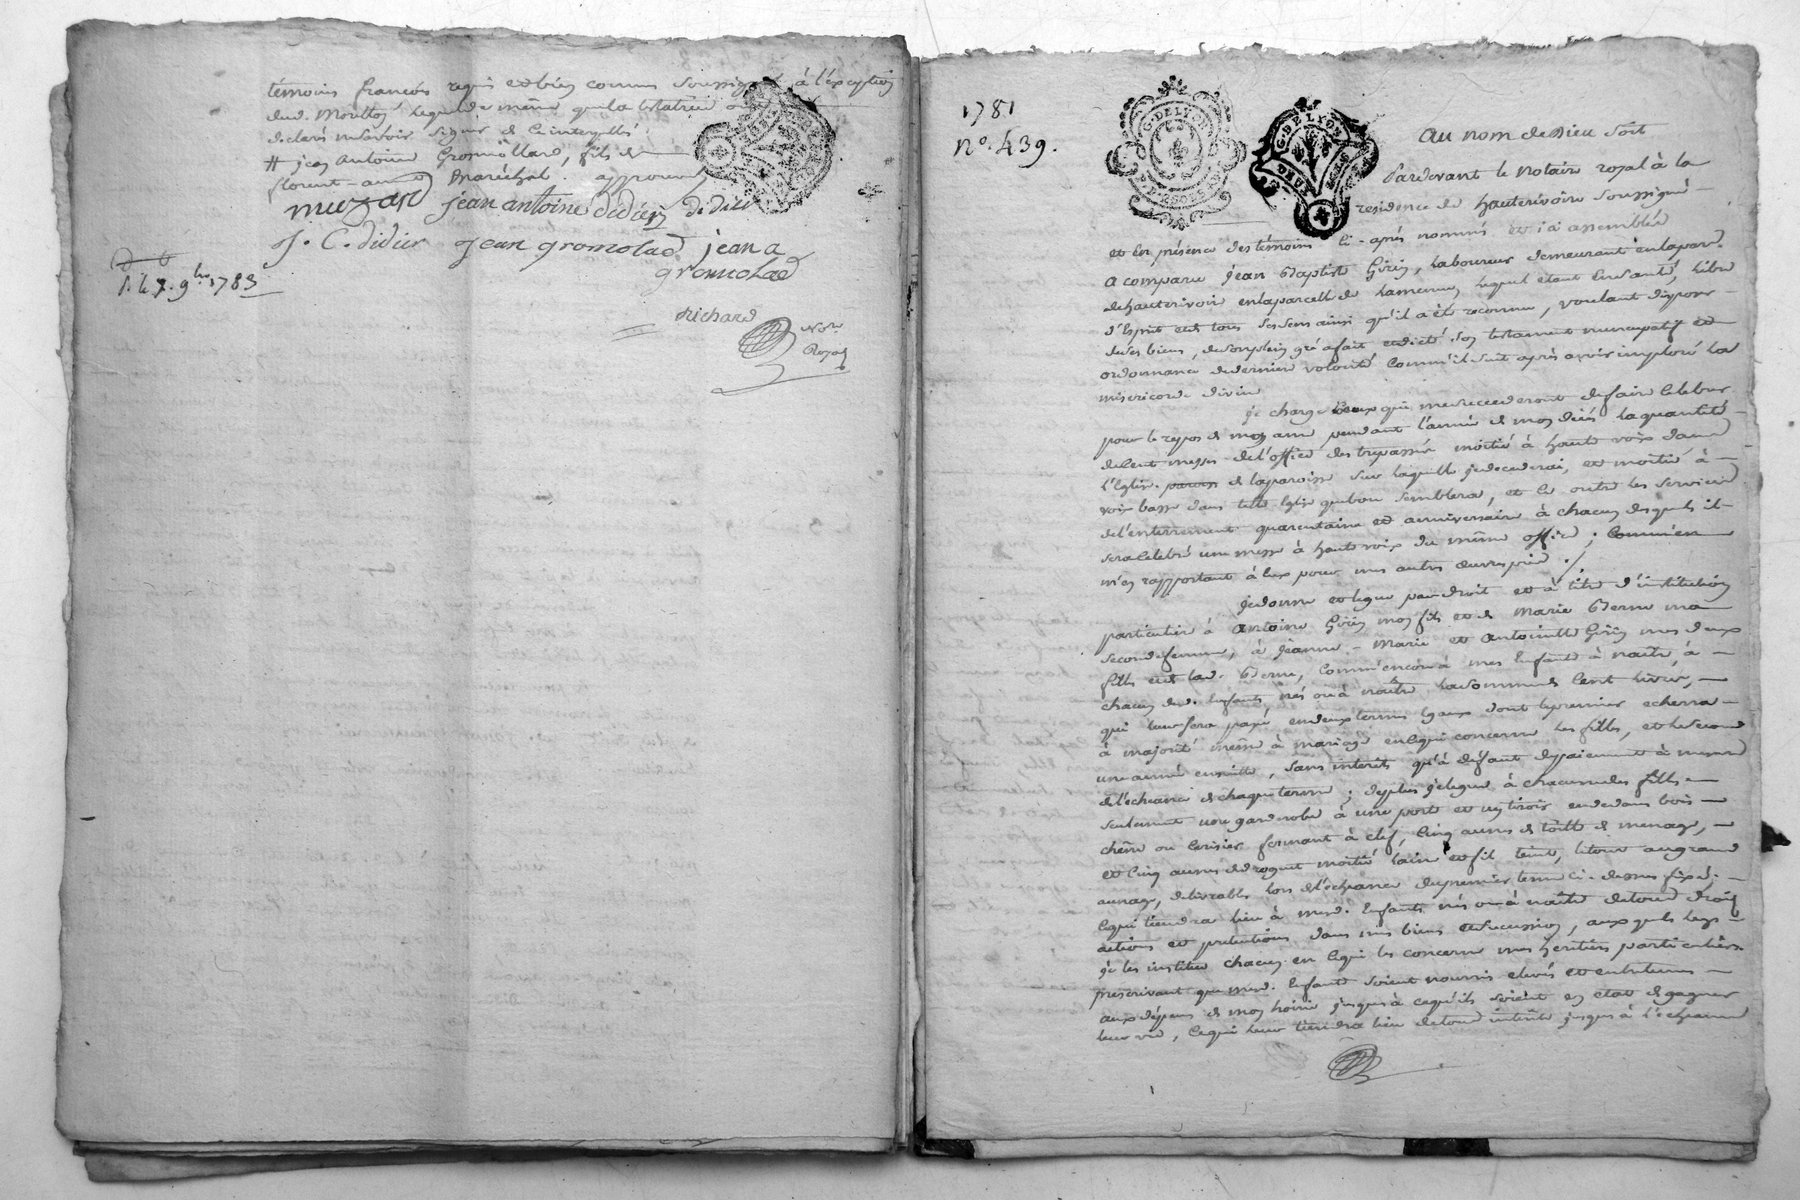 témoins françois requis et bien connus soussignés à l'exception
dud. Moulloz lequel de même que la testatrice ont
declaré ne savoir signer de ce interpellés
# jean Antoine Gromollard, fils de
florent maréchal. approuvé
muzard jean antoine didier didier
J. C. didier jean gromolard jean a
gromolard
P. le 7. 9bre 1783
Richard
Not.
Royal
1781
No. 439.
G. DE LYON
G. DE LYON
DEUX SOLS
au nom de Dieu soit
Pardevant le Notaire royal à la
residence de hauterivoire soussigné
et en présence des témoins ci-après nommés et ici assemblés
a comparu jean Baptiste Girin, laboureur demeurant en la par.
de hauterivoire en la parcelle de lequel étant en santé, libre
d'Esprit et de tous ses sens ainsi qu'il a été reconnu, voulant disposer
de ses biens, de son plein gré a fait et dicté son testament nuncupatif et
ordonnance de derniere volonté comme il suit après avoir imploré la
misericorde divine
je charge ceux qui me succederont de faire celebrer
pour le repos de mon ame pendant l'année de mon décés la quantité
de cent messes de l'office des trepassés moitié à haute voix dans
l'Eglise de la paroisse sur laquelle je decederai, et moitié à
voix basse dans telle Eglise que bon semblera, et ce outre les services
de l'enterrement quarantaine et anniversaire à chacun desquels il
sera celebré une messe à haute voix du même office ; comm'en
m'en rapportant à eux pour mes autres œuvres pies ./.
je donne et legue par droit et à titre d'institution
particuliere à Antoine Girin mon fils et de Marie Berne ma
seconde femme, à jeanne-Marie et Antoinette Girin mes deux
filles et de lad. Berne, comm'encor à mes Enfants à naitre, à
chacun desd. Enfants, nés ou à naitre la somme de Cent livres,
qui leur sera payé en deux termes egaux dont le premier echerra
à majorité même à mariage en ce qui concerne les filles, et le second
une année ensuitte, sans interets qu'à défaut de paiement à mesure
de l'echeance de chaque terme ; de plus je legue à chacune des filles
seulement une garderobe à une porte et un tiroir en dedans bois
chêne ou cerisier fermant à clef, cinq aunes de toille de menage,
et cinq aunes de droguet moitié laine et fil teint, le tout au grand
aunage, delivrables lors de l'echeance du premier terme ci-dessus fixé ;
ce qui tiendra lieu à mesd. Enfants nés ou à naitre de tous droits
actions et pretentions dans mes biens et succession, aux quels legs
je les institue chacun en ce qui les concerne mes heritiers particuliers.
prescrivant que mesd. Enfants soient nourris elevés et entretenus
aux dépens de mon hoirie jusques à ce qu'ils soient en etat de gagner
leur vie, ce qui leur tiendra lieu de tous interets jusques à l'echeance